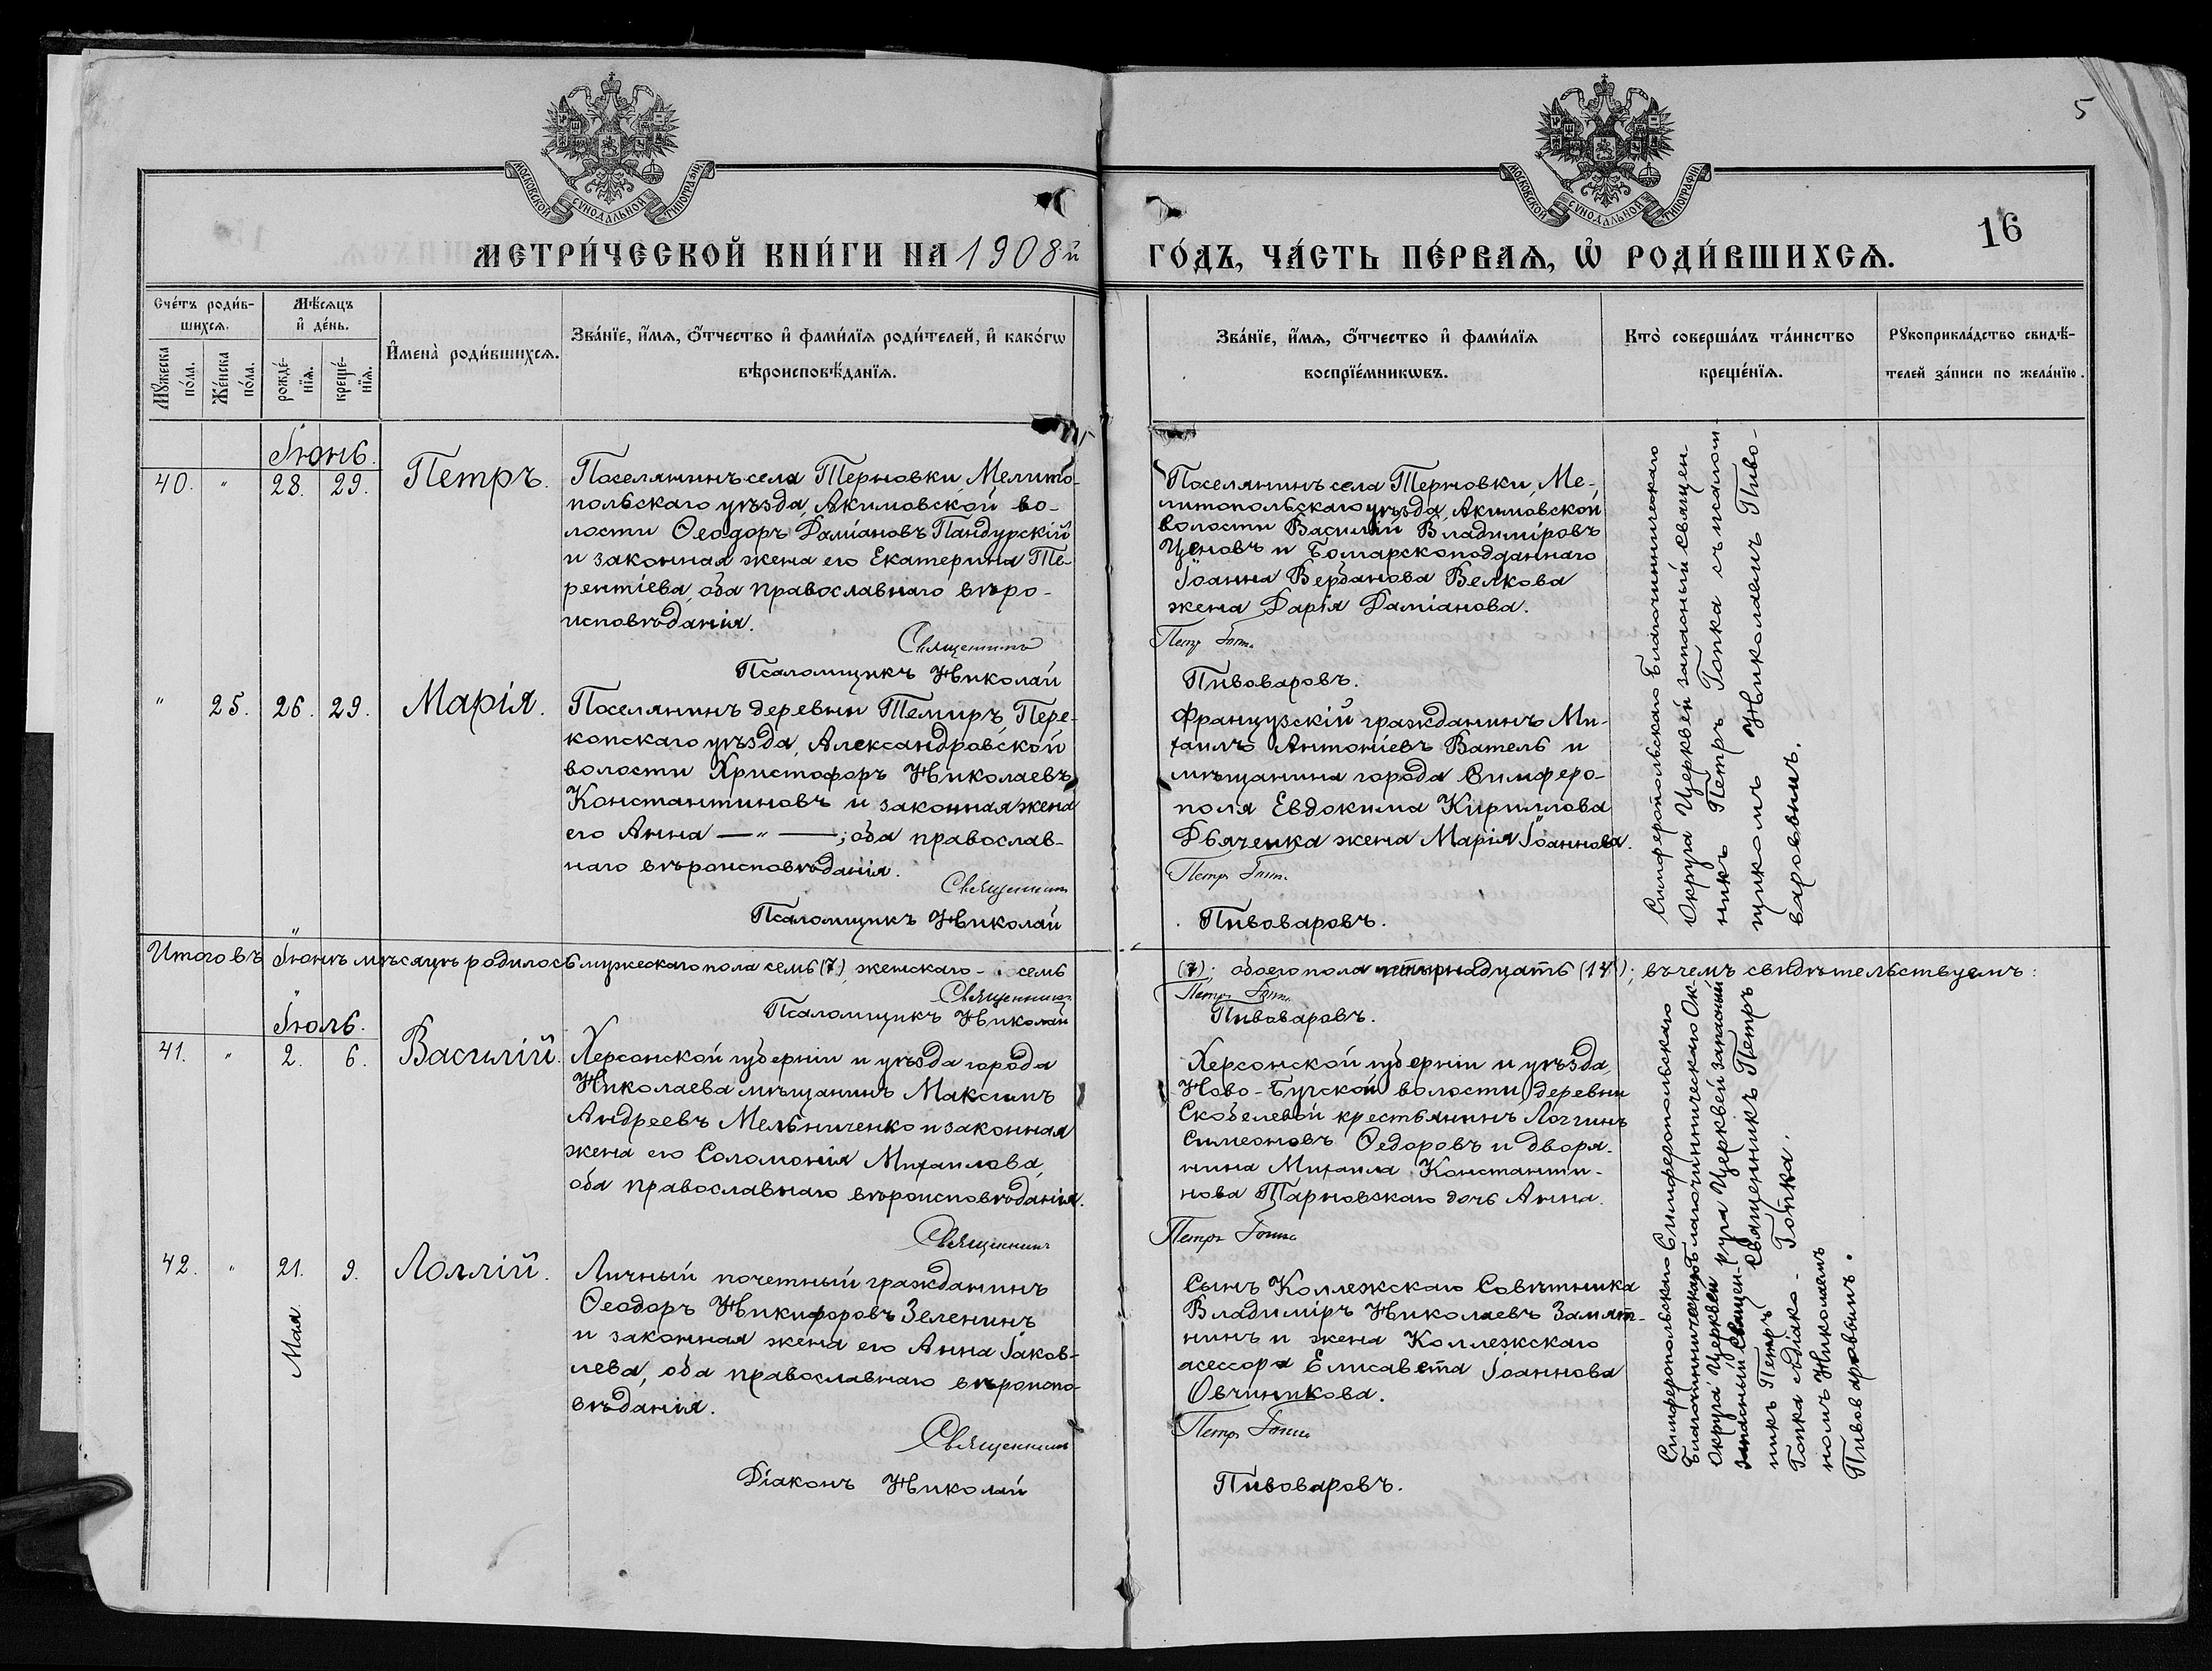 5
МОСКОВСКОЙ СѴНОДАЛЬНОЙ ТИПОГРАФІИ
МОСКОВСКОЙ СѴНОДАЛЬНОЙ ТИПОГРАФІИ
16
МЕТРИ́ЧЕСКОЙ КНИ́ГИ НА 1908й
ГО́ДЪ, ЧА́СТЬ ПЕ́РВАѦ, Ѡ҆ РОДИ́ВШИХСѦ.
Сче́тъ роди́в-
шихсѧ.
Мꙋ́жеска
по́ла.
Же́нска
по́ла.
Мѣ́сѧцъ
и҆ де́нь.
рожде́-
нїѧ.
креще́-
нїѧ.
И҆мена̀ роди́вшихсѧ.
Зва́нїе, и҆́мѧ, ѻ҆́тчество и҆ фами́лїѧ роди́телей, и҆ како́гѡ
вѣроисповѣ́данїѧ.
Зва́нїе, и҆́мѧ, ѻ҆́тчество и҆ фами́лїѧ
воспрїе́мникѡвъ.
Кто̀ соверша́лъ та́инство
креще́нїѧ.
Рꙋкоприкла́дство свидѣ́-
телей за́писи по жела́нїю.
Іюнь.
40. " 28. 29. Петръ.
Поселянинъ села Терновки, Мелито-
польскаго уѣзда, Акимовской во-
лости Ѳеодоръ Даміановъ Пандурскій
и законная жена его Екатерина Те-
рентіева, оба православнаго вѣро-
исповѣданія.
Священникъ
Псаломщикъ Николай
Поселянинъ села Терновки, Ме-
литопольскаго уѣзда, Акимовской
волости Василій Владиміровъ
Ценовъ и Болгарскоподданнаго
Іоанна Вербанова Велкова
жена Дарія Даміанова.
Петръ Гопка
Пивоваровъ.
" 25. 26. 29. Марія.
Поселянинъ деревни Темиръ, Пере-
копскаго уѣзда, Александровской
волости Христофоръ Николаевъ
Константиновъ и законная жена
его Анна — " — ; оба православ-
наго вѣроисповѣданія.
Священникъ
Псаломщикъ Николай
Французскій гражданинъ Ми-
хаилъ Антоніевъ Ватель и
мѣщанина города Симферо-
поля Евдокима Кириллова
Дьяченка жена Марія Іоаннова.
Петръ Гопка
Пивоваровъ.
Симферопольскаго Благочинническаго
Округа Церквей запасный священ-
никъ Петръ Гопка съ псалом-
щикомъ Николаемъ Пиво-
варовымъ.
Итого въ Іюнѣ мѣсяцѣ родилось мужескаго пола семь (7), женскаго - семь
(7); обоего пола четырнадцать (14); въ чемъ свидѣтельствуемъ:
Священникъ
Петръ Гопка
Псаломщикъ Николай
Пивоваровъ.
Іюль.
41. " 2. 6. Василій.
Херсонской губерніи и уѣзда города
Николаева мѣщанинъ Максимъ
Андреевъ Мельниченко и законная
жена его Соломонія Михаилова,
оба православнаго вѣроисповѣданія.
Священникъ
Херсонской губерніи и уѣзда,
Ново-Бугской волости, деревни
Скобелевой крестьянинъ Логгинъ
Симеоновъ Ѳедоровъ и дворя-
нина Михаила Константи-
нова Тарновскаго дочь Анна.
Петръ Гопка
Симферопольскаго
Благочинническаго Ок-
руга Церквей запасный
Священникъ Петръ
Гопка.
42. " 21. 9. Лоллій.
Мая
Личный почетный гражданинъ
Ѳеодоръ Никифоровъ Зеленинъ
и законная жена его Анна Іаков-
лева, оба православнаго вѣроиспо-
вѣданія.
Священникъ
Діаконъ Николай
Сынъ Коллежскаго Совѣтника
Владиміръ Николаевъ Замят-
нинъ и жена Коллежскаго
асессора Елисавета Іоаннова
Овчиникова.
Петръ Гопка
Пивоваровъ.
Симферопольскаго
Благочинническаго
Округа Церквей
запасный Священ-
никъ Петръ
Гопка съ діако-
номъ Николаемъ
Пивоваровымъ.